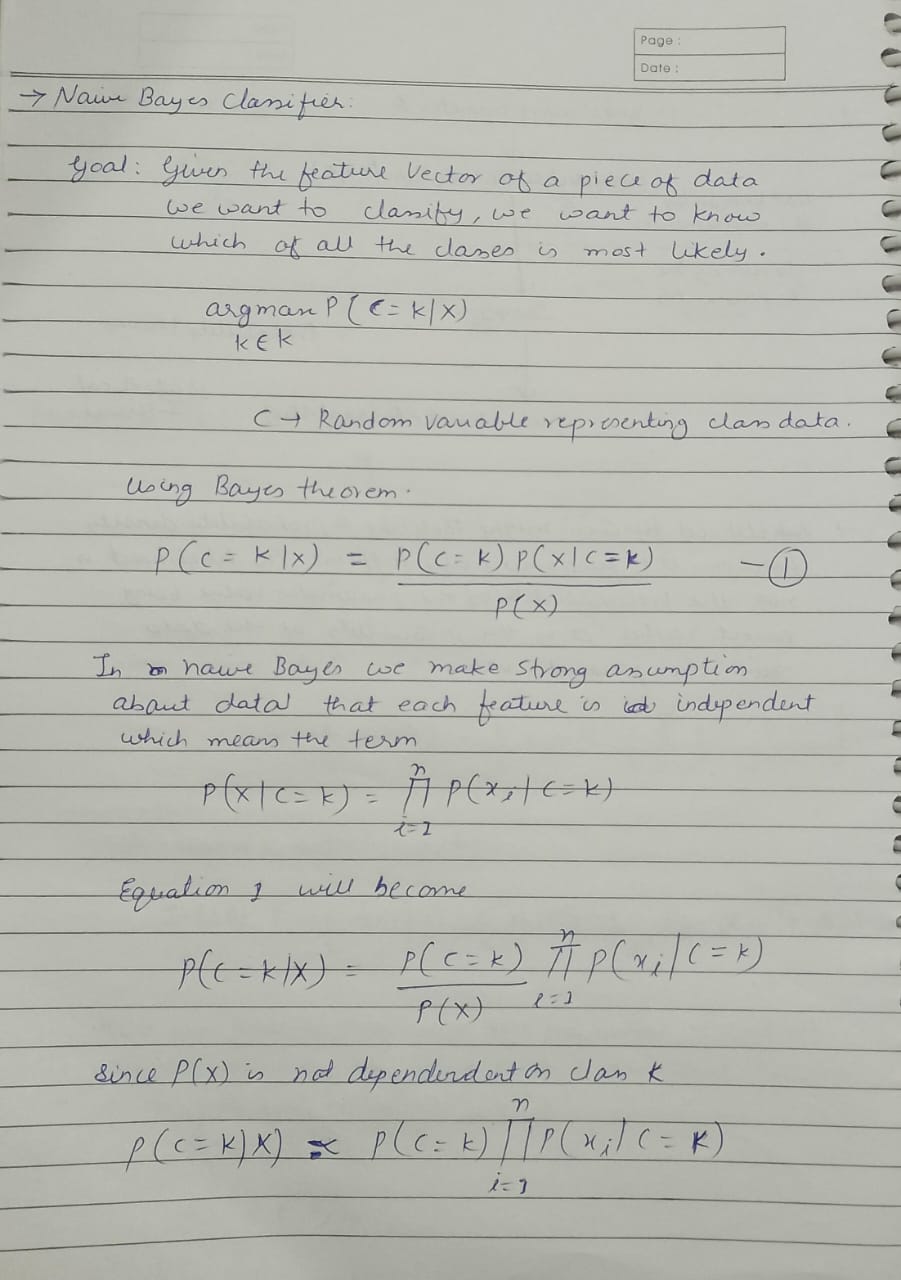 Page :
Date :
→ Naive Bayes Classifier:
Goal: Given the feature vector of a piece of data
we want to classify, we want to know
which of all the classes is most likely.
argmax P(C=k|X)
k∈k
C → Random variable representing class data.
Using Bayes theorem.
P(C=k|X) = P(C=k) P(X|C=k) -①
P(X)
In naive Bayes we make strong assumption
about data that each feature is independent
which means the term
P(X|C=k) = n∏i=1 P(xi|C=k)
Equation 1 will become
P(C=k|X) = P(C=k) n∏i=1 P(xi|C=k)
P(X)
Since P(X) is not dependendent on class k
P(C=k|X) ∝ P(C=k) n∏i=1 P(xi|C=k)